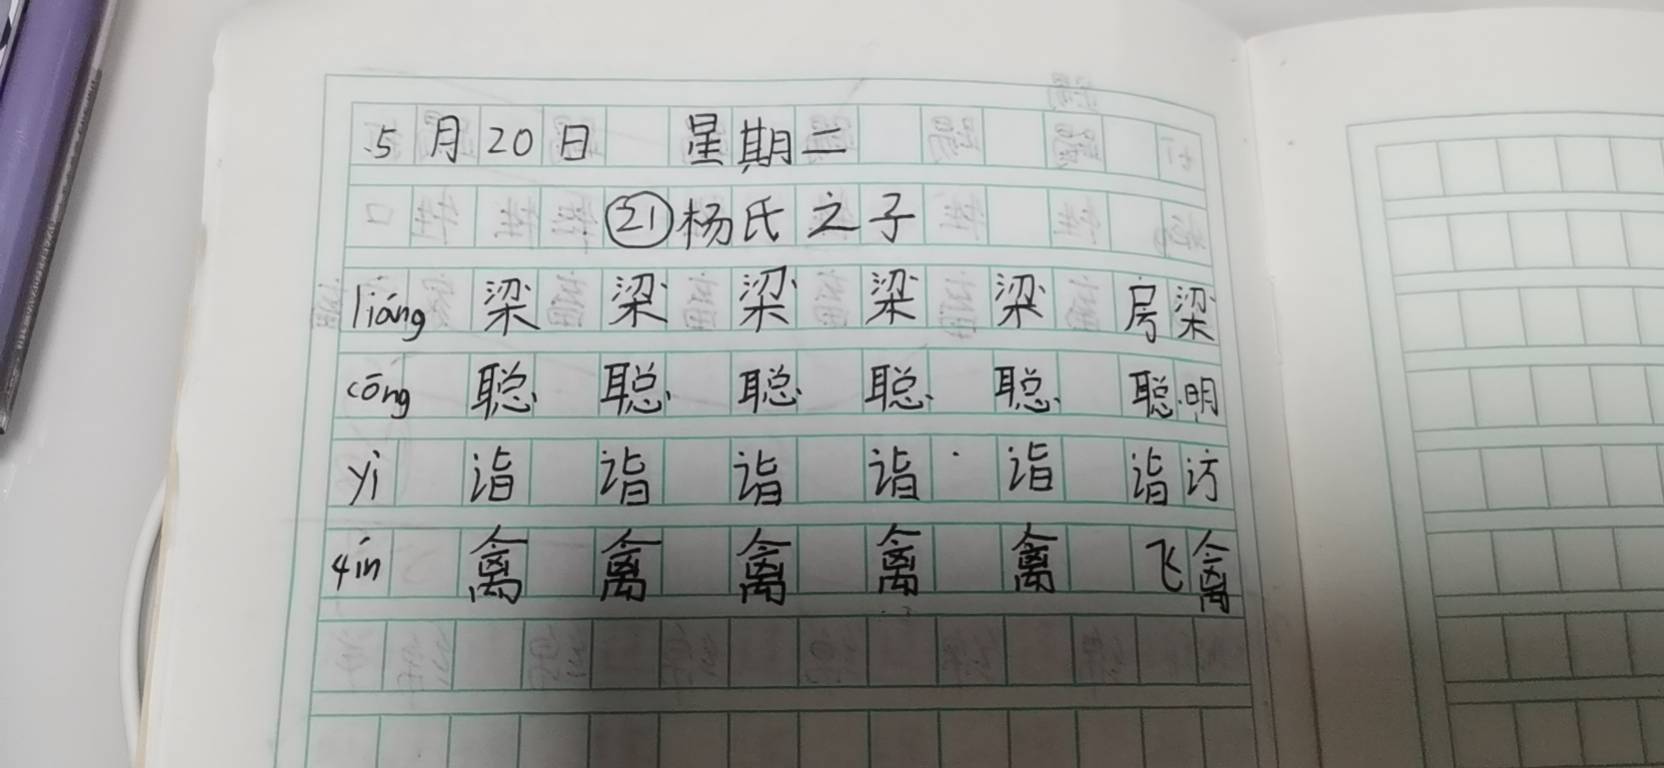 5月20日 星期二
㉑杨氏之子
liáng 梁 梁 梁 梁 梁 房梁
cōng 聪 聪 聪 聪 聪 聪明
yì 诣 诣 诣 诣 诣 诣访
qín 禽 禽 禽 禽 禽 飞禽